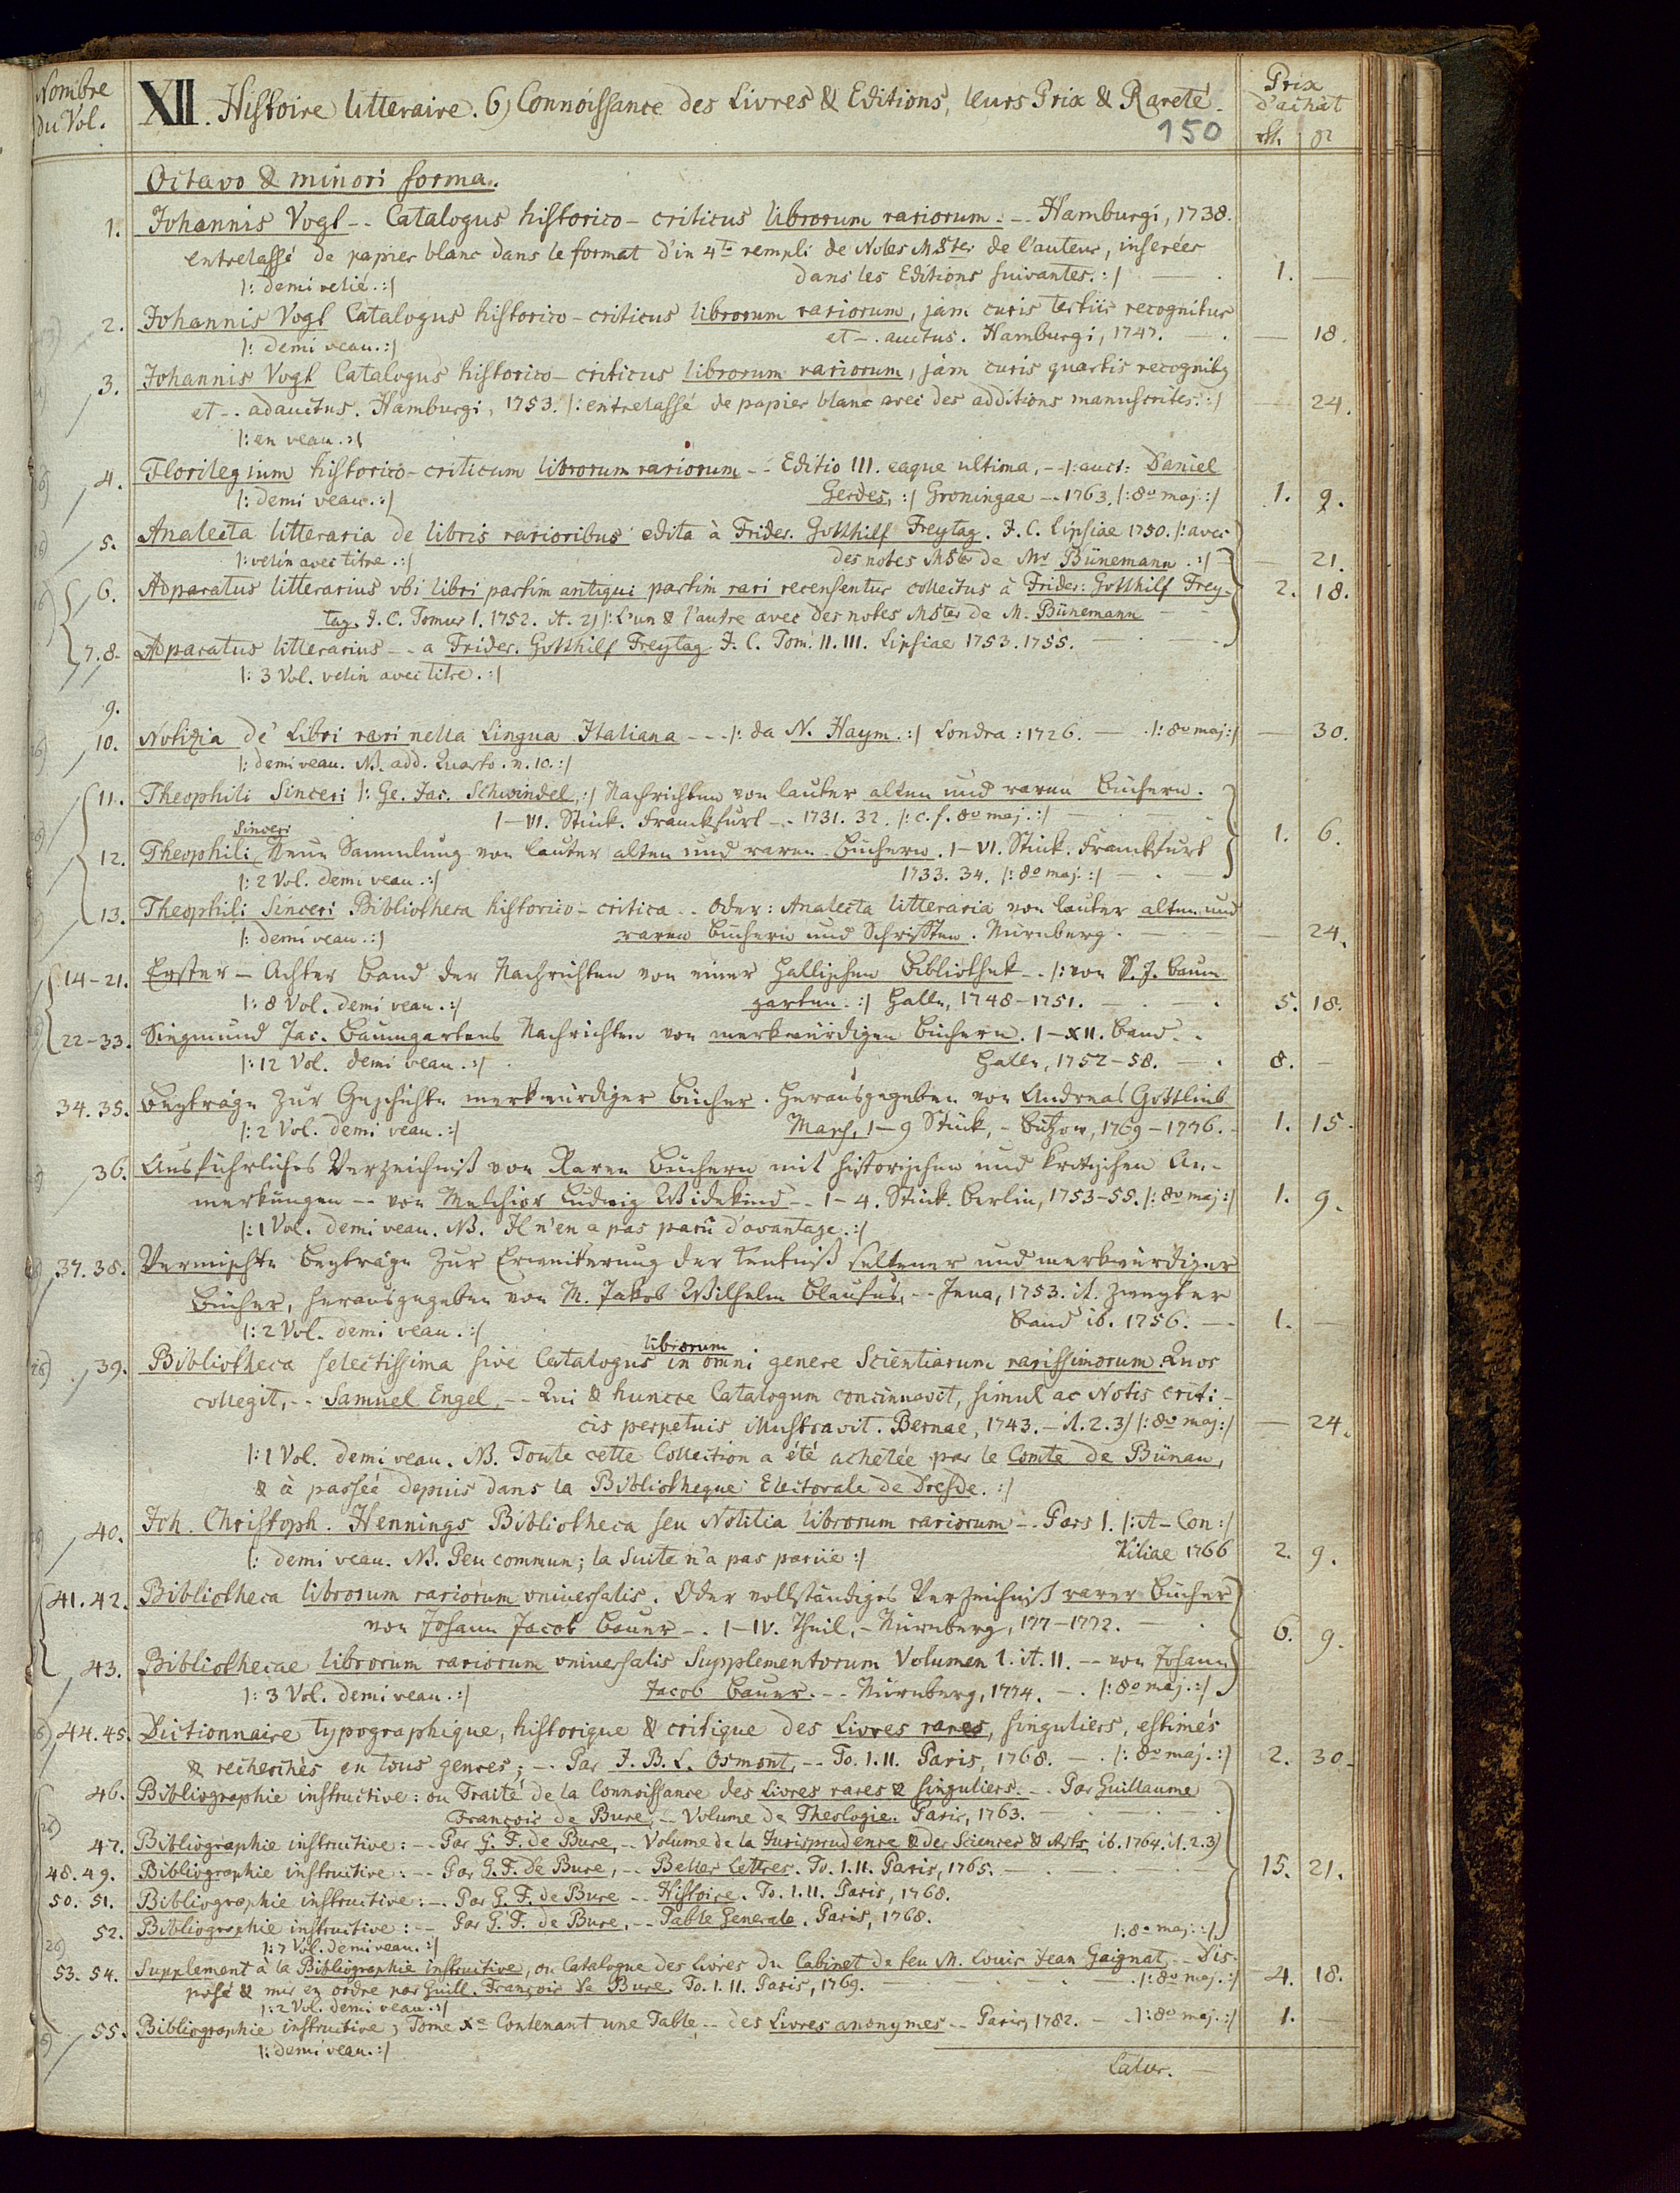 Nombre du Vol.
XII. Histoire litteraire. 6) Connoissance des Livres & Editions, leurs Prix & Rareté.
150
Prix d'achat
Octavo & minori forma.
1. Johannis Vogt -- Catalogus historico-criticus librorum rariorum. -- Hamburgi, 1738.
entrelassé de papier blanc dans le format d'in 4to rempli de Notes MSter de l'auteur, inserées
|: demi relié. :| dans les Editions suivantes. :| 1. —
2. Johannis Vogt Catalogus historico-criticus librorum rariorum, jam curis tertiis recognitus
|: demi veau. :| et -. auctus. Hamburgi, 1747. — 18.
3. Johannis Vogt Catalogus historico-criticus librorum rariorum, jam curis quartis recognitus
et -. adauctus. Hamburgi, 1753. |: entrelassé de papier blanc avec des additions manuscrites. :| — 24.
|: en veau. :|
4. Florilegium historico-criticum librorum rariorum -- Editio III. eaque ultima, - |: auct: Daniel
|: demi veau. :| Gerdes, :| Groningae -. 1763. |: 8o maj. :| 1. 9.
5. Analecta litteraria de libris rarioribus edita à Frider. Gotthilf Freytag. J. C. Lipsiae 1750. |: avec
|: velin avec titre. :| des notes MSter de Mr Bünemann. :| — 21.
6. Adparatus litterarius vbi libri partim antiqui partim rari recensentur collectus à Frider: Gotthilf Frey- 2. 18.
tag. J. C. Tomus I. 1752. it. 2) |: L'un & l'autre avec des notes MSter de M. Bünemann
7. 8. Adparatus litterarius -- a Frider. Gotthilf Freytag. J. C. Tom. II. III. Lipsiae 1753. 1755.
|: 3 Vol. velin avec titre. :|
9.
10. Notizia de' Libri rari nella Lingua Italiana --- |: da N. Haym. :| Londra: 1726. — |: 8o maj :| — 30.
|: demi veau. NB. add. Quarto. n. 10. :|
11. Theophili Sinceri |: Ge. Jac. Schwindel, :| Nachrichten von lauter alten und raren Büchern.
I-VI. Stück. Franckfurt -. 1731. 32. |: c. f. 8o maj. :|
12. Theophili Sinceri Neue Sammlung von lauter alten und raren Büchern. I-VI. Stück. Franckfurt 1. 6.
|: 2 Vol. demi veau. :| 1733. 34. |: 8o maj. :|
13. Theophili Sinceri Bibliotheca historico-critica -. Oder: Analecta litteraria von lauter alten und
|: demi veau. :| raren Büchern und Schrifften. Nürnberg. — 24.
14-21. Erster - Achter Band der Nachrichten von einer Hallischen Bibliothek -. |: von S. J. Baum
|: 8 Vol. demi veau. :| garten. :| Halle, 1748-1751. 5. 18.
22-33. Siegmund Jac. Baumgartens Nachrichten von merkwürdigen Büchern. I-XII. Band. -
|: 12 Vol. demi veau. :| Halle, 1752-58. 8. —
34. 35. Beyträge zur Geschichte merkwürdiger Bücher. Herausgegeben von Andreas Gottlieb
|: 2 Vol. demi veau. :| Masch, 1-9 Stück, - Bützow, 1769-1776. 1. 15.
36. Ausführliches Verzeichniß von Raren Büchern mit historischen und kritischen An-
merkungen -- von Melchior Ludwig Widekind -- 1-4. Stück. Berlin, 1753-55. |: 8o maj :| 1. 9.
|: 1 Vol. demi veau. NB. Il n'en a pas parû d'avantage. :|
37. 38. Vermischte Beyträge zur Erweiterung der Kentniß seltener und merkwürdiger
Bücher, herausgegeben von M. Jakob Wilhelm Blaufus, -- Jena, 1753. it. Zweyter
|: 2 Vol. demi veau. :| Band ib. 1756. 1. —
39. Bibliotheca selectissima sive Catalogus librorum in omni genere Scientiarum rarissimorum. Quos
collegit, -- Samuel Engel, -- Qui & huncce Catalogum concinnavit, simul ac Notis criti-
cis perpetuis illustravit. Bernae, 1743. - it. 2. 3) |: 8o maj :| — 24.
|: 1 Vol. demi veau. NB. Toute cette Collection a été achetée par le Comte de Bünau,
& à passée depuis dans la Bibliotheque Electorale de Dresde. :|
40. Joh. Christoph. Hennings Bibliotheca seu Notitia librorum rariorum -. Pars I. |: A-Con :|
|: demi veau. NB. Peu commun; la Suite n'a pas parüe :| Kiliae 1766 2. 9.
41. 42. Bibliotheca librorum rariorum vniversalis. Oder vollständiges Verzeichniß rarer Bücher
von Johann Jacob Bauer -. I-IV. Theil, - Nürnberg, 177-1772. 6. 9.
43. Bibliothecae librorum rariorum vniversalis Supplementorum Volumen I. it. II. -- von Johann
|: 3 Vol. demi veau. :| Jacob Bauer. -- Nürnberg, 1774. -. |: 8o maj. :|
44. 45. Dictionnaire typographique, historique & critique des Livres rares, singuliers, estimés
& recherchés en tous genres; -. Par J. B. L. Osmont, -- To. I. II. Paris, 1768. -. |: 8o maj. :| 2. 30.
46. Bibliographie instructive: ou Traité de la Connoissance des Livres rares & singuliers. -- Par Guillaume
François de Bure, -- Volume de Theologie. Paris, 1763.
47. Bibliographie instructive: -- Par G. F. de Bure, -- Volume de la Jurisprudence & des Sciences & Arts, ib. 1764. it. 2. 3)
48. 49. Bibliographie instructive: -- Par G. F. de Bure, -- Belles Lettres. To. I. II. Paris, 1765. 15. 21.
50. 51. Bibliographie instructive: -. Par G. F. de Bure -- Histoire. To. I. II. Paris, 1768.
52. Bibliographie instructive: -- Par G. F. de Bure, -- Table Generale. Paris, 1768. |: 8o maj. :|
|: 7 Vol. demi veau. :|
53. 54. Supplement à la Bibliographie instructive, ou Catalogue des Livres du Cabinet de feu M. Louis Jean Gaignat, -- Dis-
posé & mis en ordre par Guill. François De Bure. To. I. II. Paris, 1769. |: 8o maj. :| 4. 18.
|: 2 Vol. demi veau. :|
55. Bibliographie instructive, Tome Xe Contenant une Table -- des Livres anonymes -- Paris, 1782. — |: 8o maj. :| 1. —
|: demi veau. :|
Latus.